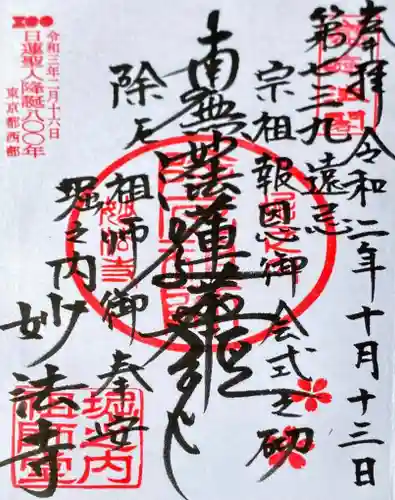 奉拝 令和二年十月十三日
第七三九遠忌
宗祖報恩御会式之砌
南無妙法蓮華経
除厄
祖師御奉安
堀之内妙法寺
令和三年二月十六日
日蓮聖人降誕八〇〇年
東京都西部
堀之内
祖師堂